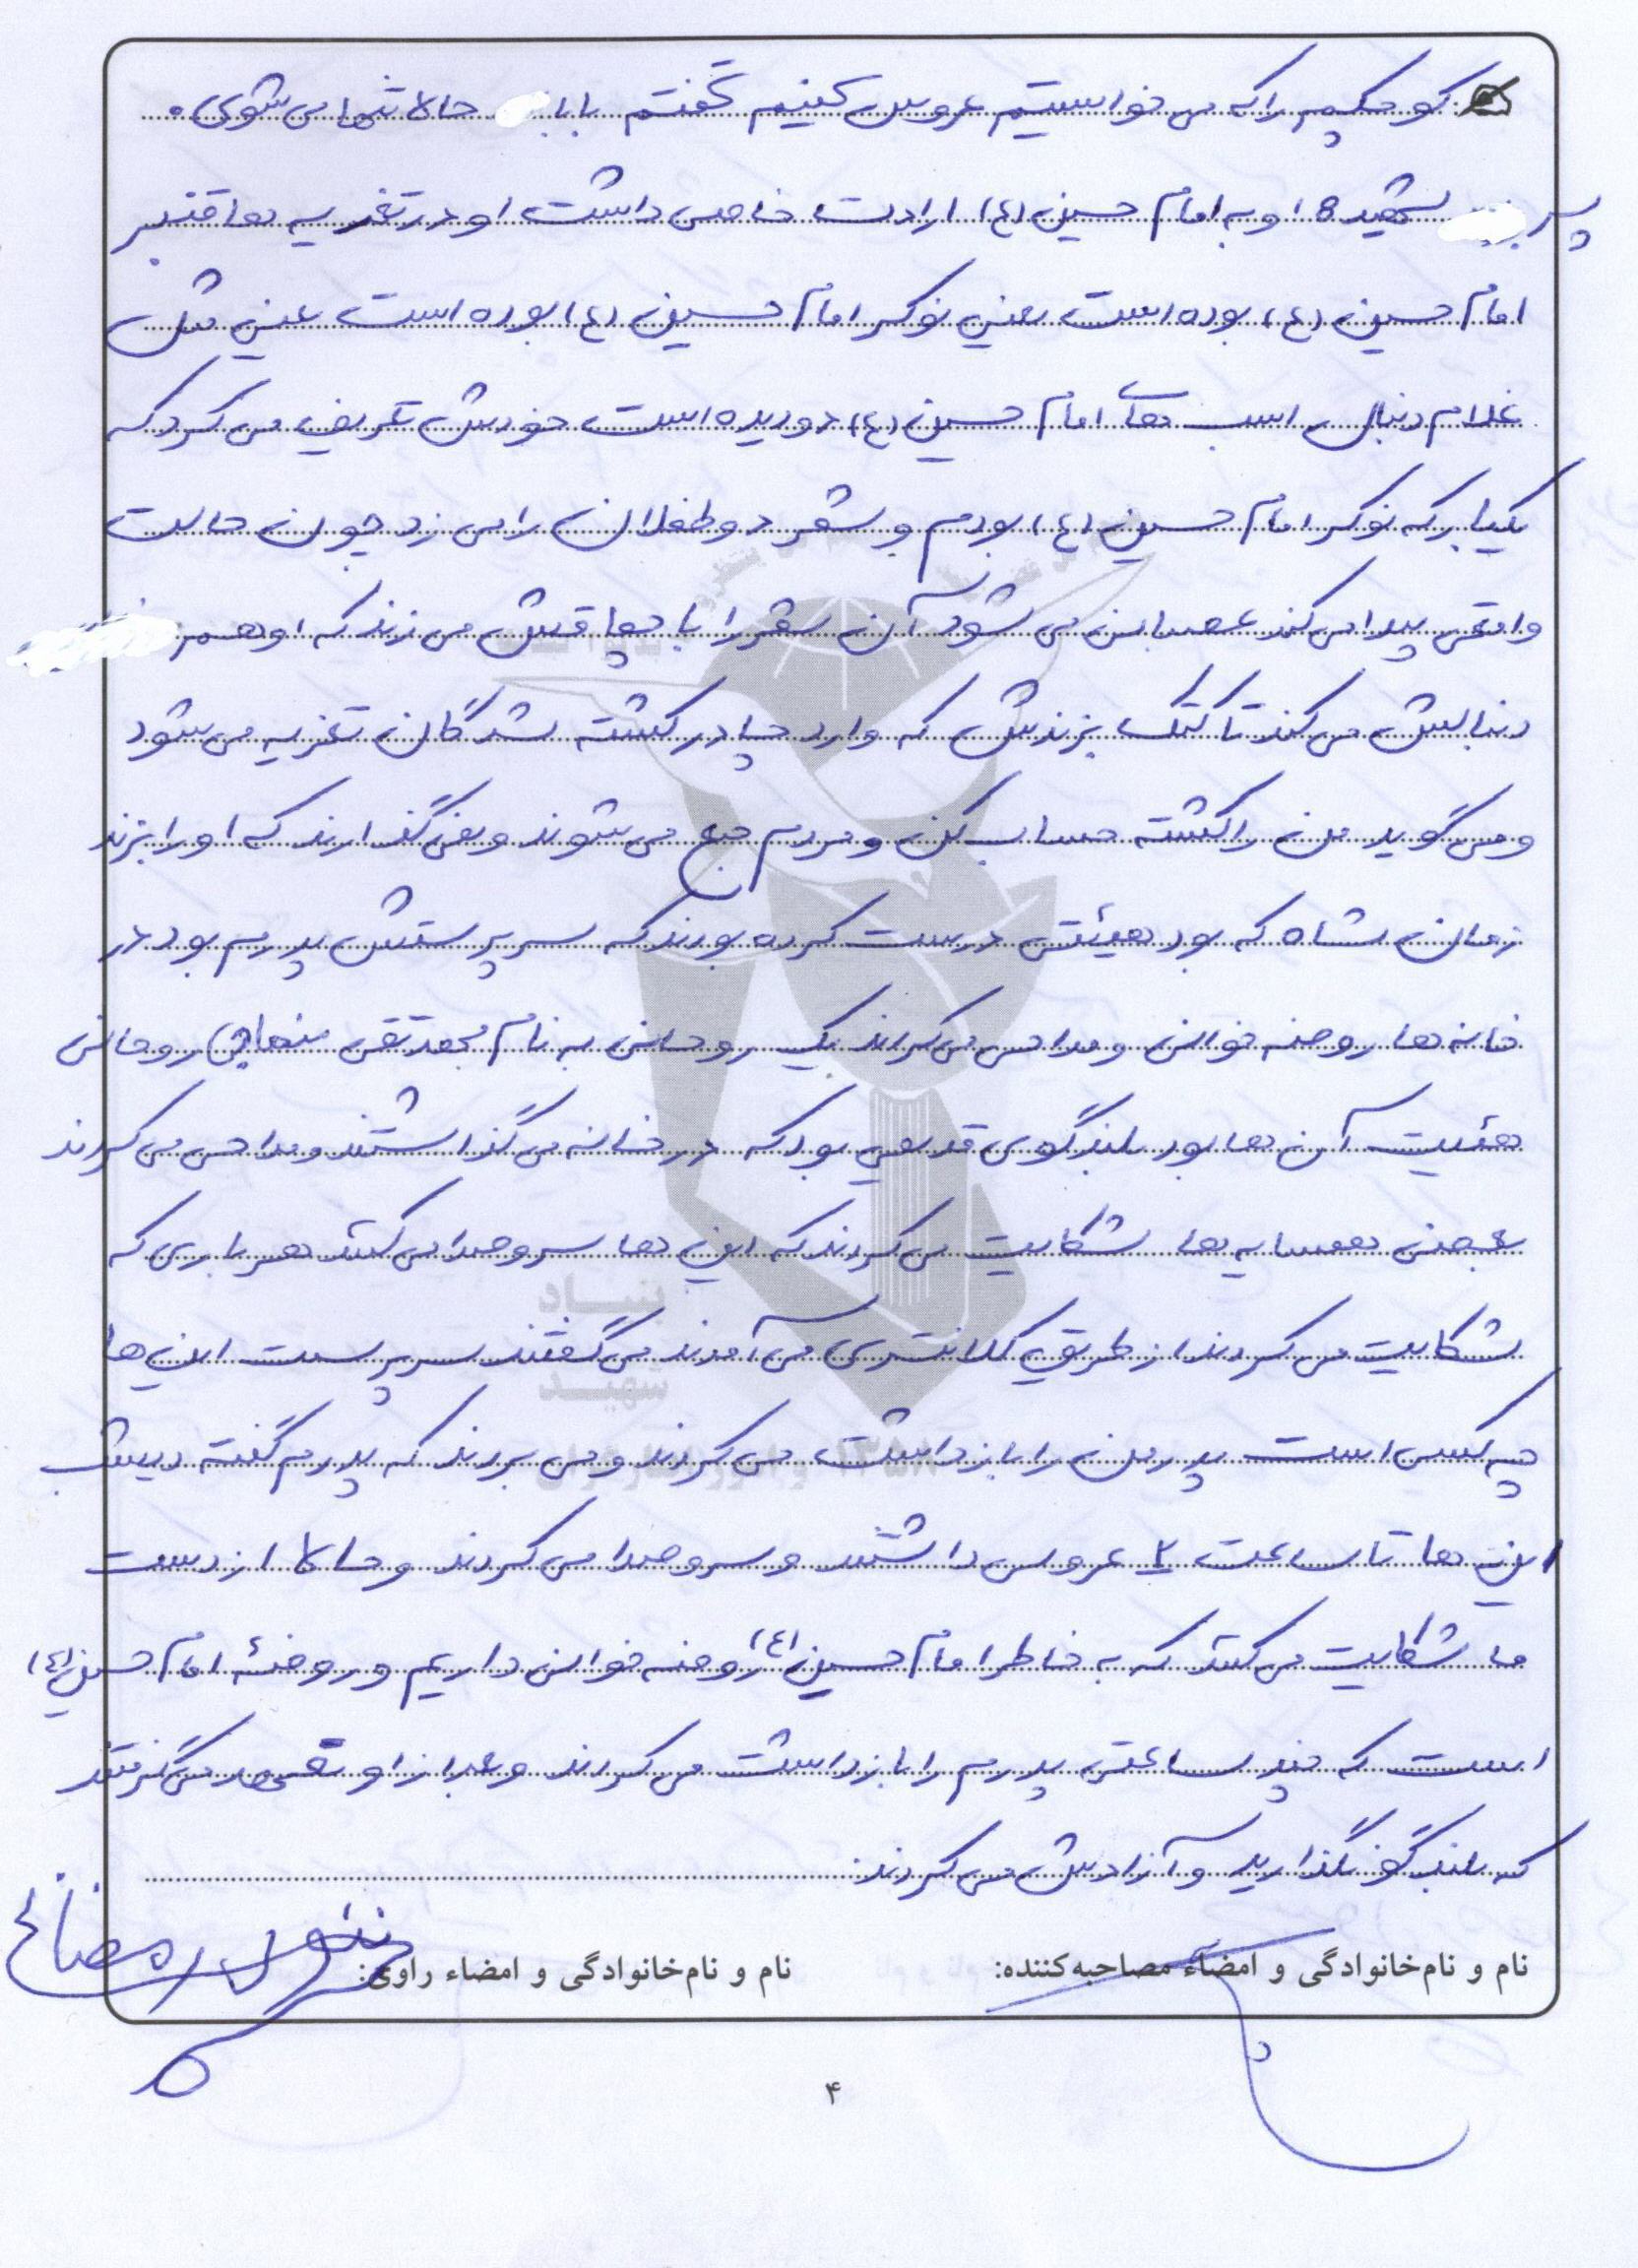 کوچکم را که می خواستیم عروس کنیم گفتم بابا حالا تنها می شوی.
پسر شهید 8 او به امام حسین (ع) ارادت خاصی داشت او در تعزیه ها قنبر
امام حسین (ع) بوده است یعنی نوکر امام حسین (ع) بوده است یعنی مثل
غلام دنبال اسب های امام حسین (ع) دویده است خودش تعریف می کرد که
یکبار که نوکر امام حسین (ع) بودم و شمر دو طفلان را می زد چون حالت
واقعی پیدا می کند عصبانی می شود آن شمر را با چماقش می زند که او هم
دنبالش می کند تا کتک بزندش که وارد چادر کشته شدگان تعزیه می شود
و می گوید من را کشته حساب کن و مردم جمع می شوند و نمی گذارند که او را بزند
زمان شاه که بود هیئتی درست کرده بودند که سرپرستش پدرم بود در
خانه ها روضه خوانی و مداحی می کردند یک روحانی به نام محمدتقی روحانی
هئیت آن ها بود بلندگوی قدیمی بود که در خانه می گذاشتند و مداحی می کردند
بعضی همسایه ها شکایت می کردند که این ها سر و صدا می کنند هر باری که
شکایت می کردند از طریق کلانتری می آمدند می گفتند سرپرست این ها
چه کسی است پدر من را بازداشت می کردند و می بردند که پدرم گفته دیشب
این ها تا ساعت ۲ عروسی داشتند و سر و صدا می کردند و حالا از دست
ما شکایت می کنند که به خاطر امام حسین (ع) روضه خوانی داریم و روضهٔ امام حسین (ع)
است که چند ساعتی پدرم را بازداشت می کردند و بعد از او تعهد می گرفتند
که بلندگو نگذارید و آزادش می کردند.
نام و نام‌خانوادگی و امضاء مصاحبه‌کننده: نام و نام‌خانوادگی و امضاء راوی:
۴